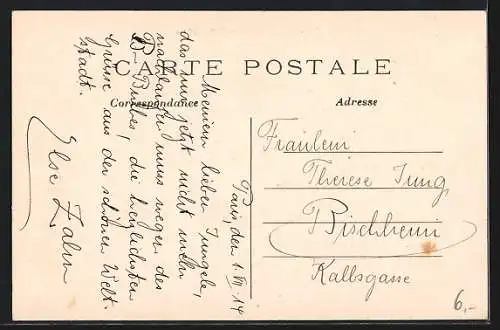 CARTE POSTALE
Correspondance
Adresse
Paris, den 1. VII. 14
Meinem lieben Jungele,
das nun jetzt nicht mehr
nachlaufen muss wegen des
B. Bubes, die herzlichsten
Grüsse aus der schönen Welt-
stadt.
Else Zahn
Fräulein
Therese Jung
Bischheim
Kallsgasse
6,-